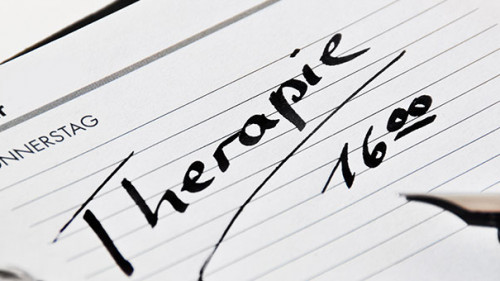 NNERSTAG
Therapie
16 00